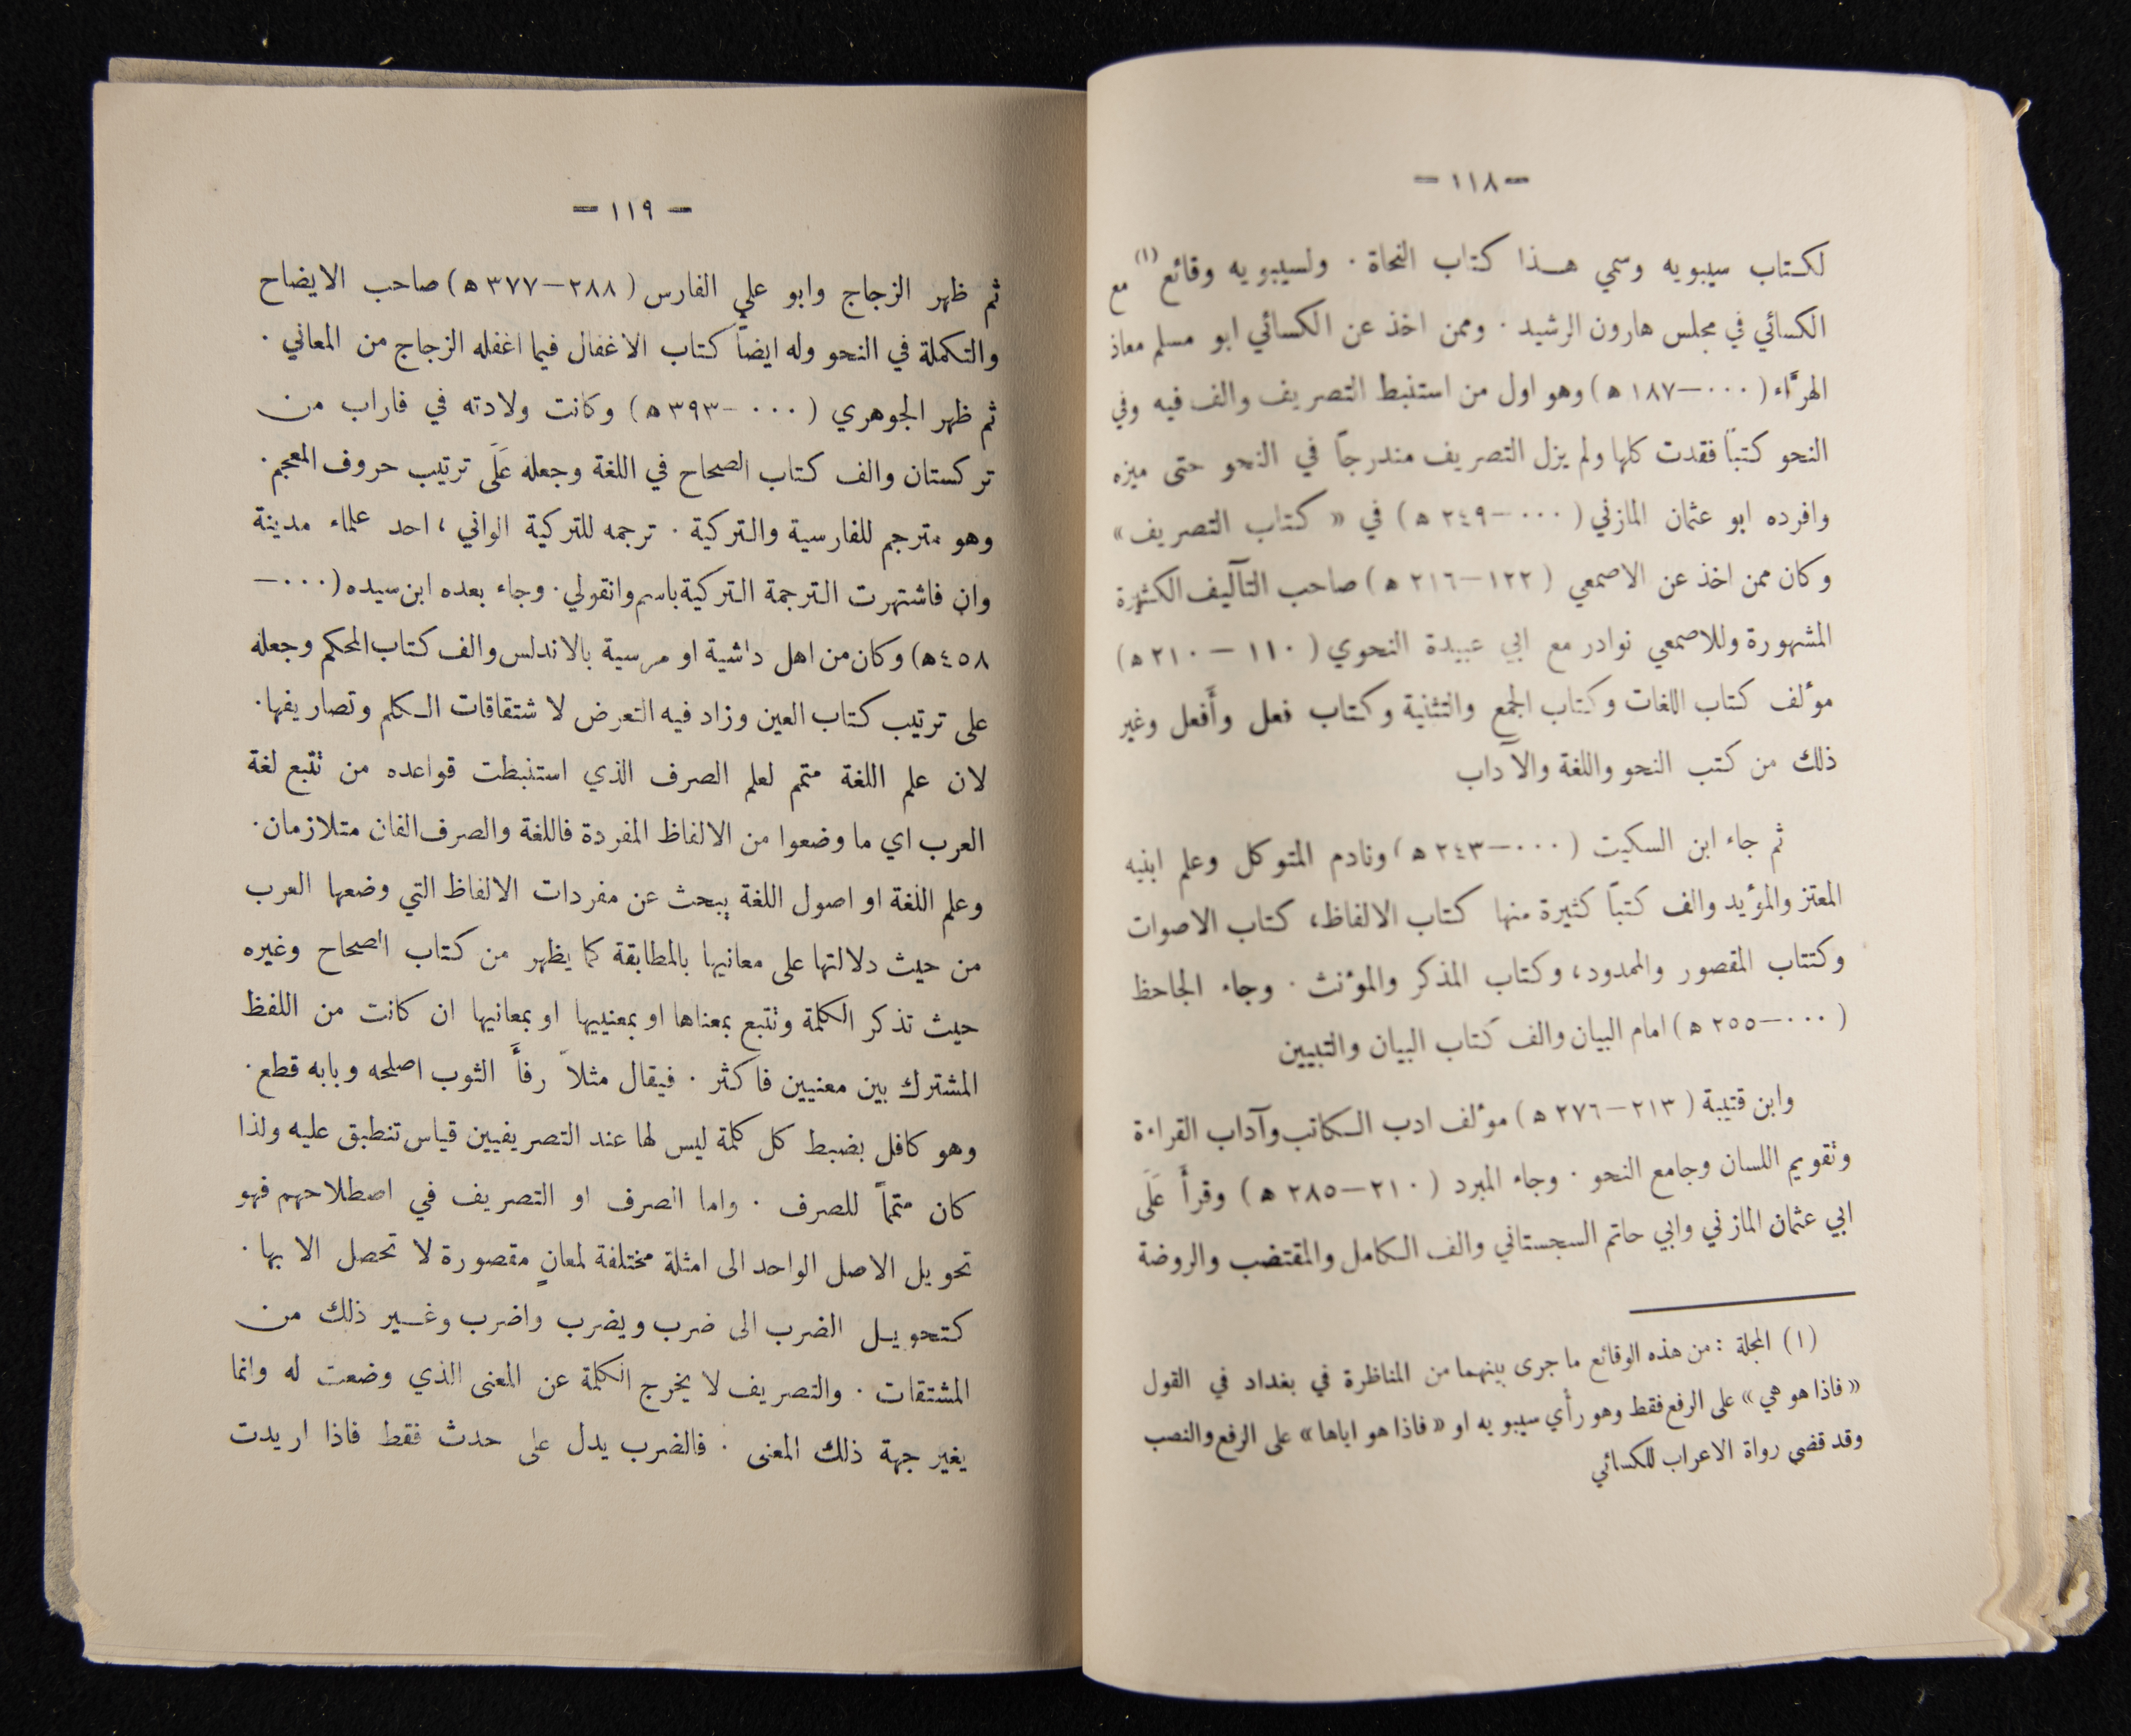 — ١١٨ —
لكتاب سيبويه وسمي هـذا كتاب النحاة . ولسيبويه وقائع (١) مع
الكسائي في مجلس هارون الرشيد . وممن اخذ عن الكسائي ابو مسلم معاذ
الهرَّاء ( ٠٠٠—١٨٧ ه‍ ) وهو اول من استنبط التصريف والف فيه وفي
النحو كتباً فقدت كلها ولم يزل التصريف مندرجاً في النحو حتى ميزه
وافرده ابو عثمان المازني ( ٠٠٠—٢٤٩ ه‍ ) في « كتاب التصريف »
وكان ممن اخذ عن الاصمعي ( ١٢٢—٢١٦ ه‍ ) صاحب التآليف الكثيرة
المشهورة وللاصمعي نوادر مع ابي عبيدة النحوي ( ١١٠ — ٢١٠ ه‍ )
مؤلف كتاب اللغات وكتاب الجمع والتثنية وكتاب فعل وأَفعل وغير
ذلك من كتب النحو واللغة والآداب
ثم جاء ابن السكيت ( ٠٠٠—٢٤٣ ه‍ ) ونادم المتوكل وعلم ابنيه
المعتز والمؤيد والف كتباً كثيرة منها كتاب الالفاظ، كتاب الاصوات
وكتتاب المقصور والممدود، وكتاب المذكر والمؤنث . وجاء الجاحظ
( ٠٠٠—٢٥٥ ه‍ ) امام البيان والف كتاب البيان والتبيين
وابن قتيبة ( ٢١٣—٢٧٦ ه‍ ) مؤلف ادب الكاتب وآداب القراءة
وتقويم اللسان وجامع النحو . وجاء المبرد ( ٢١٠—٢٨٥ ه‍ ) وقرأَ عَلَى
ابي عثمان المازني وابي حاتم السجستاني والف الكامل والمقتضب والروضة
(١) المجلة : من هذه الوقائع ما جرى بينهما من المناظرة في بغداد في القول
« فاذا هو هي » على الرفع فقط وهو رأي سيبويه او « فاذا هو اياها » على الرفع والنصب
وقد قضى رواة الاعراب للكسائي
— ١١٩ —
ثم ظهر الزجاج وابو علي الفارس ( ٢٨٨—٣٧٧ ه‍ ) صاحب الايضاح
والتكملة في النحو وله ايضاً كتاب الاغفال فيما اغفله الزجاج من المعاني .
ثم ظهر الجوهري ( ٠٠٠-٣٩٣ ه‍ ) وكانت ولادته في فاراب من
تركستان والف كتاب الصحاح في اللغة وجعله عَلَى ترتيب حروف المعجم .
وهو مترجم للفارسية والتركية . ترجمه للتركية الواني ، احد علماء مدينة
وان فاشتهرت الترجمة التركية باسم وانقولي . وجاء بعده ابن سيده (٠٠٠—
٤٥٨ه‍) وكان من اهل داشية او مرسية بالاندلس والف كتاب المحكم وجعله
على ترتيب كتاب العين وزاد فيه التعرض لاشتقاقات الكلم وتصاريفها .
لان علم اللغة متمم لعلم الصرف الذي استنبطت قواعده من تتبع لغة
العرب اي ما وضعوا من الالفاظ المفردة فاللغة والصرف الفان متلازمان .
وعلم اللغة او اصول اللغة يبحث عن مفردات الالفاظ التي وضعها العرب
من حيث دلالتها على معانيها بالمطابقة كما يظهر من كتاب الصحاح وغيره
حيث تذكر الكلمة وتتبع بمعناها او بمعنييها او بمعانيها ان كانت من اللفظ
المشترك بين معنيين فاكثر . فيقال مثلاً رفأَ الثوب اصلحه وبابه قطع .
وهو كافل بضبط كل كلمة ليس لها عند التصريفيين قياس تنطبق عليه ولذا
كان متمماً للصرف . واما الصرف او التصريف في اصطلاحهم فهو
تحويل الاصل الواحد الى امثلة مختلفة لمعانٍ مقصورة لا تحصل الا بها .
كتحويـل الضرب الى ضرب ويضرب واضرب وغـير ذلك من
المشتقات . والتصريف لا يخرج الكلمة عن المعنى الذي وضعت له وانما
يغير جهة ذلك المعنى . فالضرب يدل على حدث فقط فاذا اريدت